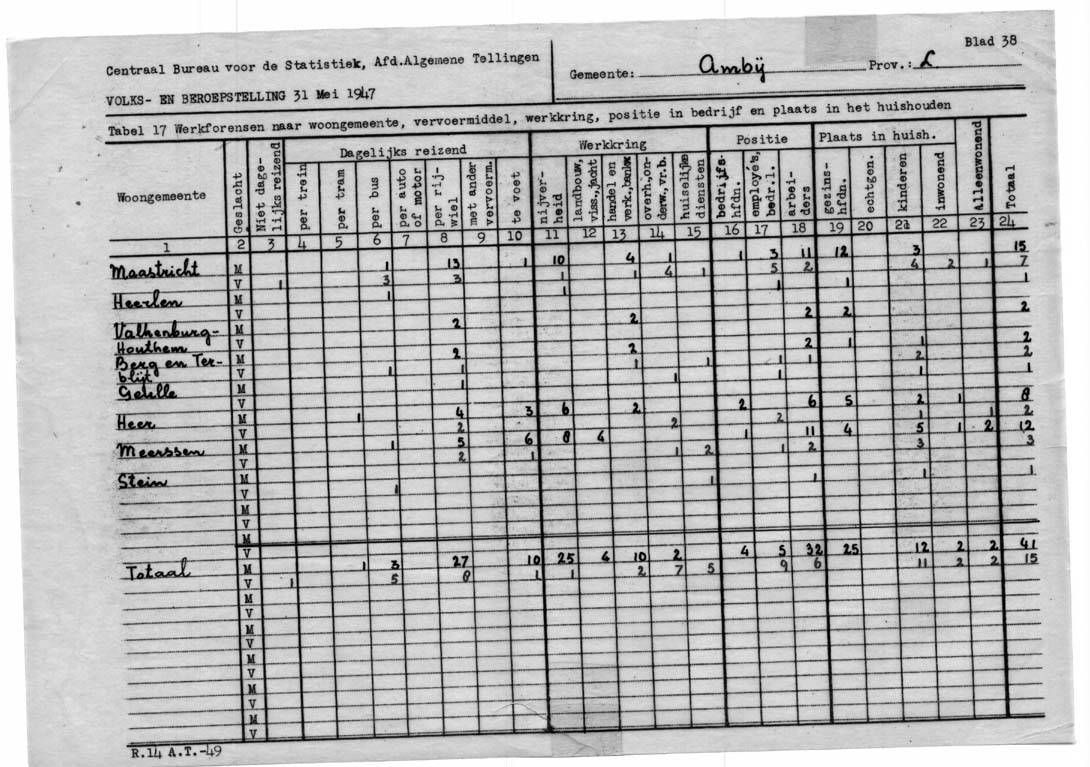 Blad 38
Centraal Bureau voor de Statistiek, Afd.Algemene Tellingen
Gemeente: Ambÿ Prov.: L
VOLKS- EN BEROEPSTELLING 31 Mei 1947
Tabel 17 Werkforensen naar woongemeente, vervoermiddel, werkkring, positie in bedrijf en plaats in het huishouden
Woongemeente
Geslacht
Niet dage-
lijks reizend
Dagelijks reizend
per trein
per tram
per bus
per auto
of motor
per rij-
wiel
met ander
vervoerm.
te voet
Werkkring
nijver-
heid
landbouw,
viss., jacht
handel en
verk., bankw
overh., on-
derw., vr.b.
huiselijke
diensten
Positie
bedrijfs-
hfdn.
employe's,
bedr.l.
arbei-
ders
Plaats in huish.
gezins-
hfdn.
echtgen.
kinderen
inwonend
Alleenwonend
Totaal
1 2 3 4 5 6 7 8 9 10 11 12 13 14 15 16 17 18 19 20 21 22 23 24
Maastricht M 1 13 1 10 4 1 1 3 11 12 3 15
V 1 3 3 1 1 4 1 5 2 4 2 1 7
Heerlen M 1 1 1 1 1
V
Valkenburg- M 2 2 2 2 2
Houthem V
Berg en Ter- M 2 2 2 1 1 2
blijt V 1 1 1 1 1 1 2 2
Geulle M 1 1 1 1 1
V
Heer M 1 4 3 6 2 2 6 5 2 1 8
V 2 2 2 1 1 2
Meerssen M 1 5 6 8 4 1 11 4 5 1 2 12
V 2 1 1 2 1 2 3 3
Stein M
V 1 1 1 1 1
M
V
M
V
Totaal M 1 3 27 10 25 4 10 2 4 5 32 25 12 2 2 41
V 1 5 8 1 1 2 7 5 9 6 11 2 2 15
M
V
M
V
M
V
M
V
M
V
R.14 A.T.-49